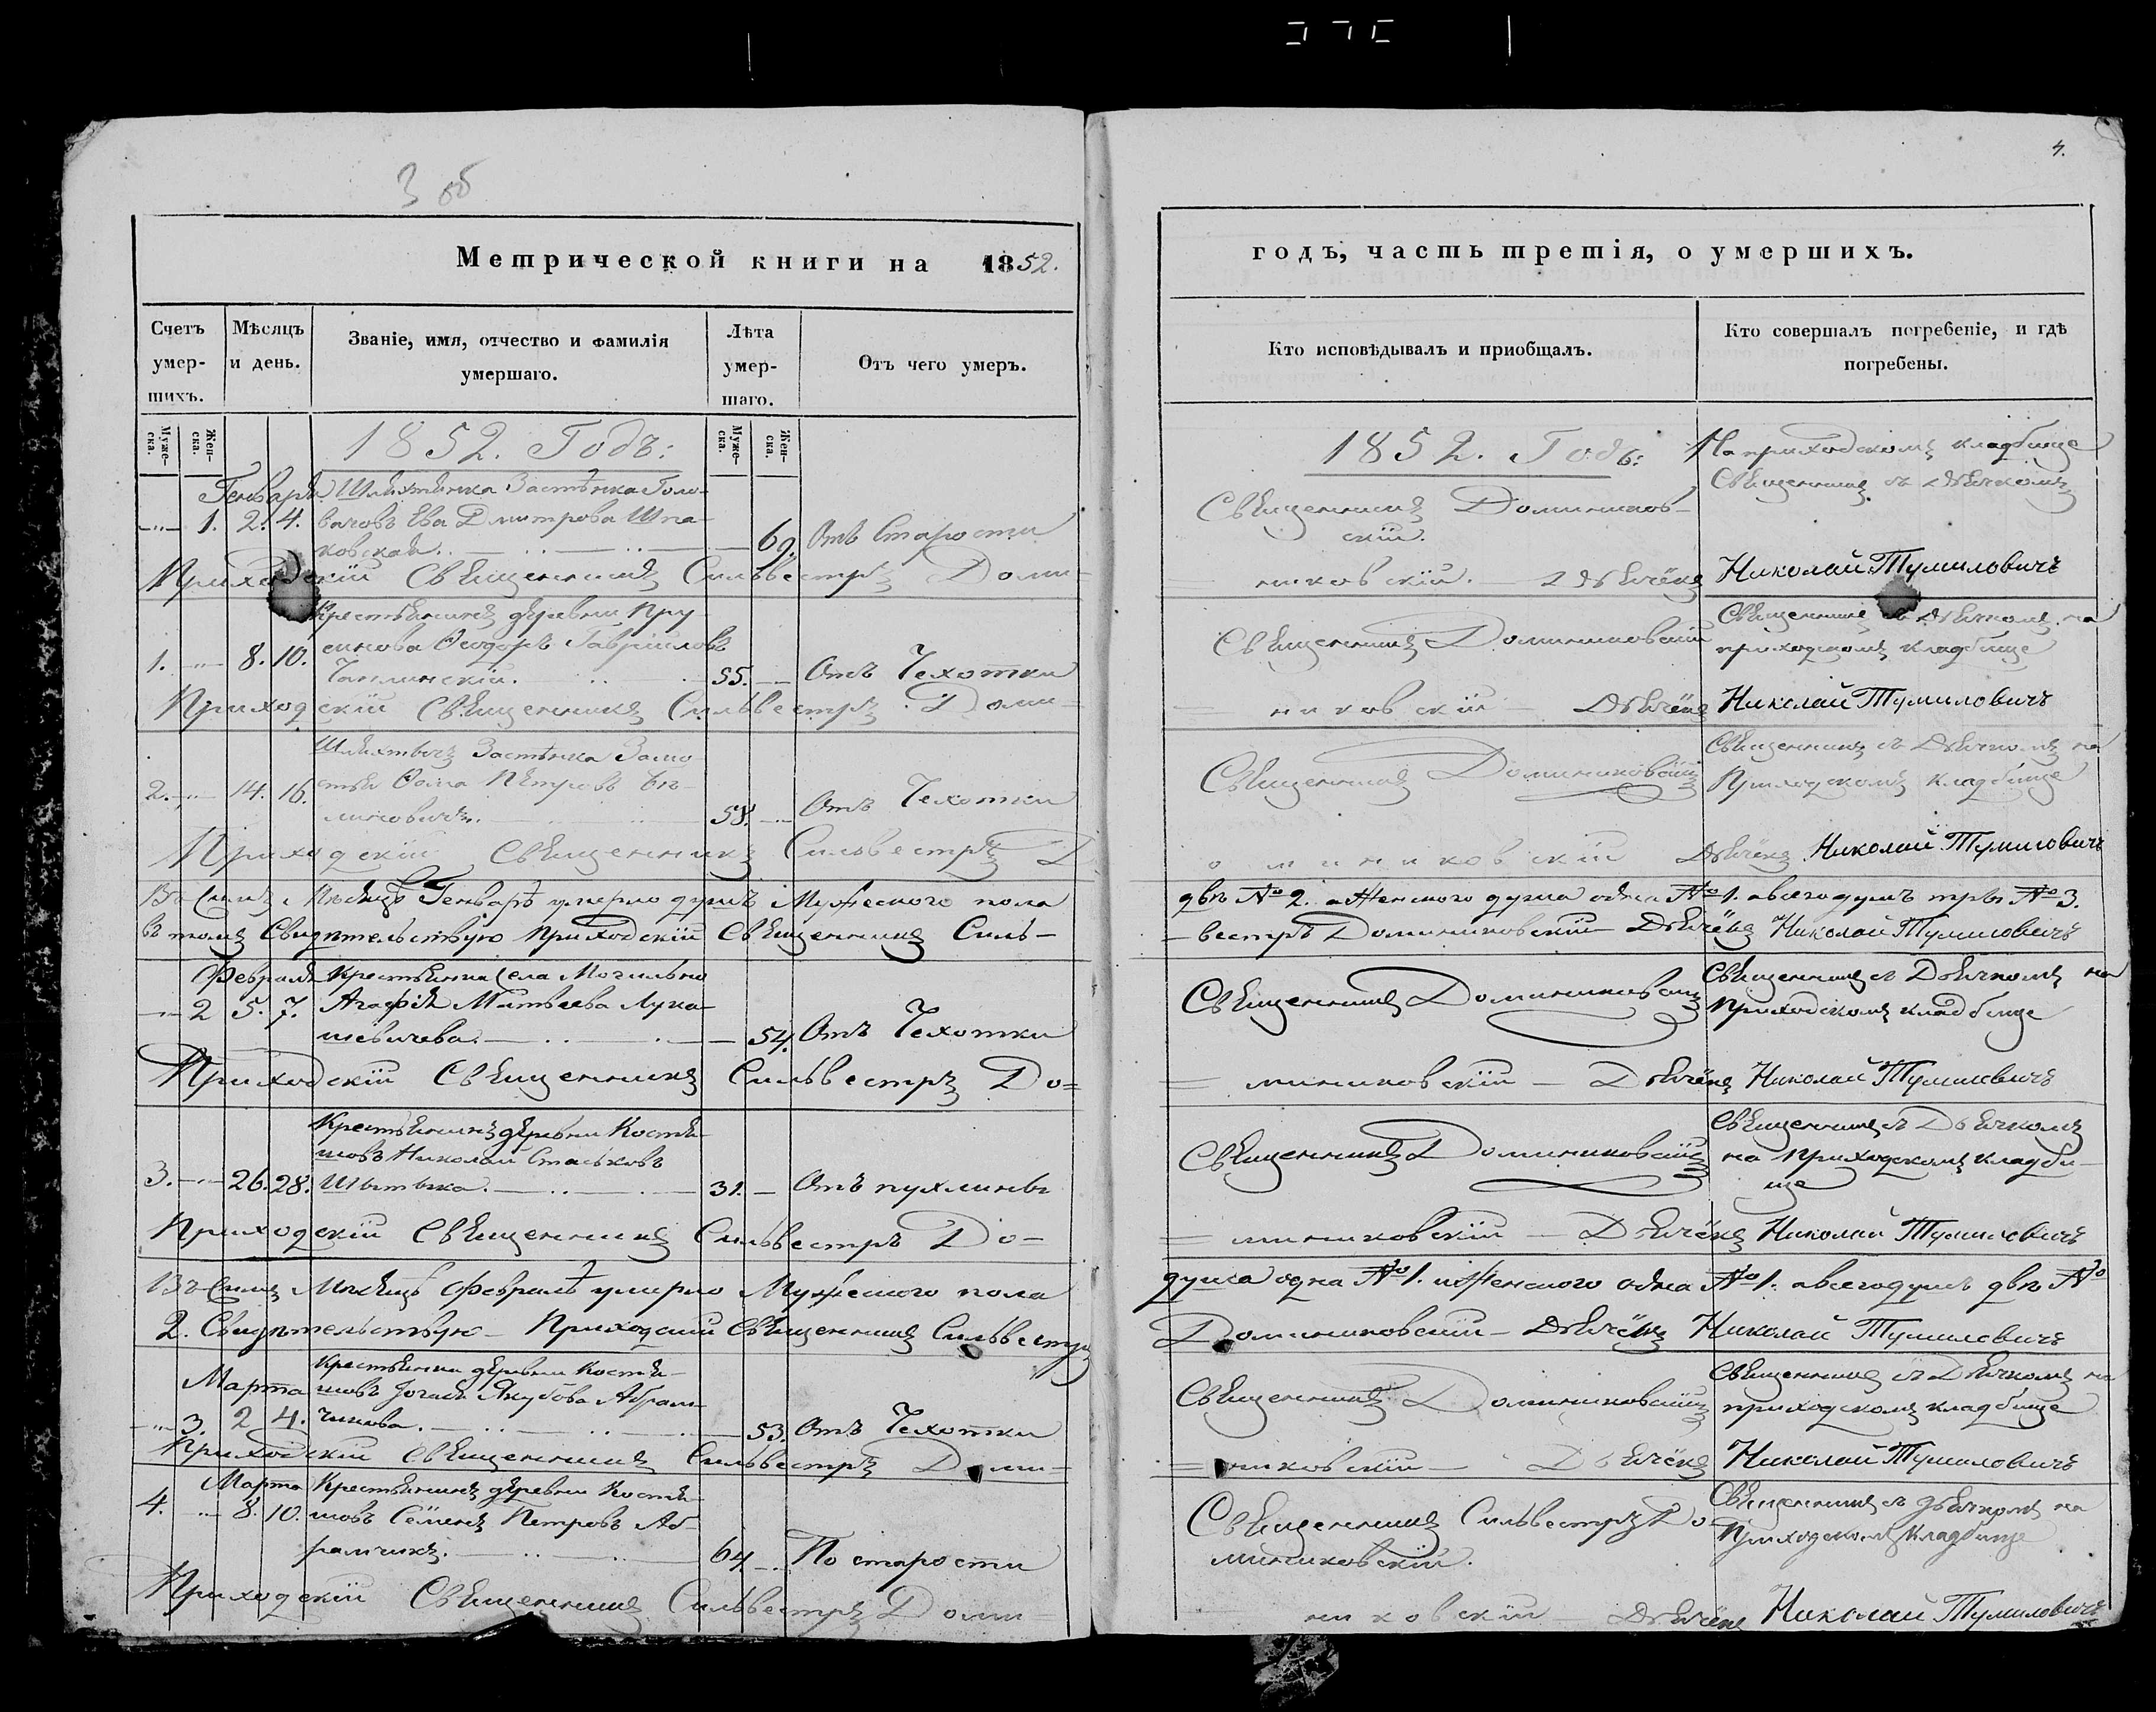 3 об
Метрической книги на 1852.
Счетъ умер- шихъ.
Мѣсяцъ и день.
Званіе, имя, отчество и фамилія умершаго.
Лѣта умер- шаго.
Отъ чего умеръ.
Муже- ска.
Жен- ска.
Муже- ска.
Жен- ска.
1852. Годъ:
Генваря Шляхтянка Застѣнка Голо-
1. 2. 4. вачовъ Ева Дмитрова Шпа-
ковская. 69. Отъ Старости
Приходскій Священникъ Сильвестръ Доми-
Крестьянинъ деревни Пру
1. 8. 10. синова Ѳеодоръ Гавріиловъ
55. Отъ Чехотки
Приходскій Священникъ Сильвестръ Доми-
Шляхтичъ Застѣнка Замо
2. 14. 16. стья Ѳома Петровъ
линовичъ. 58. Отъ Чехотки
Приходскій Священникъ Сильвестръ Д
Въ Семъ Мѣсяцѣ Генварѣ умерло душъ Мужеского пола
въ томъ Свидѣтельствую Приходскій Священникъ Силь-
Февраля Крестьянка Села Могильно
2 5. 7. Агафія Матвеева Лука-
шевичева. 54. Отъ Чехотки
Приходскій Священникъ Сильвестръ До-
Крестьянинъ деревни Костю-
шовъ Николай Стаськовъ
3. 26. 28. 31. Отъ пухлины
Приходскій Священникъ Сильвестръ До-
Въ Семъ Мѣсяцѣ Февралѣ умерло Мужеского пола
2. Свидѣтельствую Приходскій Священникъ Сильвестръ
Крестьянка деревни Костю-
Марта шовъ Якубова Абрам-
3. 2 4. чикова. 53. Отъ Чехотки
Приходскій Священникъ Сильвестръ Доми-
Марта Крестьянинъ деревни Костю-
4. 8. 10. шовъ Семенъ Петровъ Аб-
рамчикъ. 64 По старости
Приходскій Священникъ Сильвестръ Доми-
4.
годъ, часть третія, о умершихъ.
Кто исповѣдывалъ и пріобщалъ.
Кто совершалъ погребеніе, и гдѣ погребены.
1852. Годъ: На приходскомъ кладбище
Священникъ съ дьячкомъ
Священникъ Доминиковскій.
никовскій. Дьячёкъ Николай Тумиловичъ
Священникъ Доминиковскій
Священникъ съ дьячкомъ на
приходскомъ кладбище
никовскій Дьячёкъ Николай Тумиловичъ
Священникъ Доминиковскій
Священникъ съ Дьячкомъ на
Приходскомъ кладбище
оминиковскій Дьячёкъ Николай Тумиловичъ
двѣ № 2. а Женского душа одна № 1. а всего душъ три № 3.
вестръ Доминиковскій Дьячёкъ Николай Тумиловичъ
Священникъ Доминиковскій
Священникъ съ Дьячкомъ на
Приходскомъ кладбище
миниковскій Дьячёкъ Николай Тумиловичъ
Священникъ Доминиковскій
Священникъ съ Дьячкомъ
на приходскомъ кладби-
ще
миниковскій Дьячёкъ Николай Тумиловичъ
душа одна № 1. и Женского одна № 1. а всего душъ двѣ №
Доминиковскій Дьячёкъ Николай Тумиловичъ
Священникъ Доминиковскій
Священникъ съ Дьячкомъ на
приходскомъ кладбище
никовскій Дьячёкъ Николай Тумиловичъ
Священникъ Сильвестръ До-
миниковскій.
Священникъ съ дьячкомъ на
Приходскомъ Кладбище
никовскій Дьячёкъ Николай Тумиловичъ